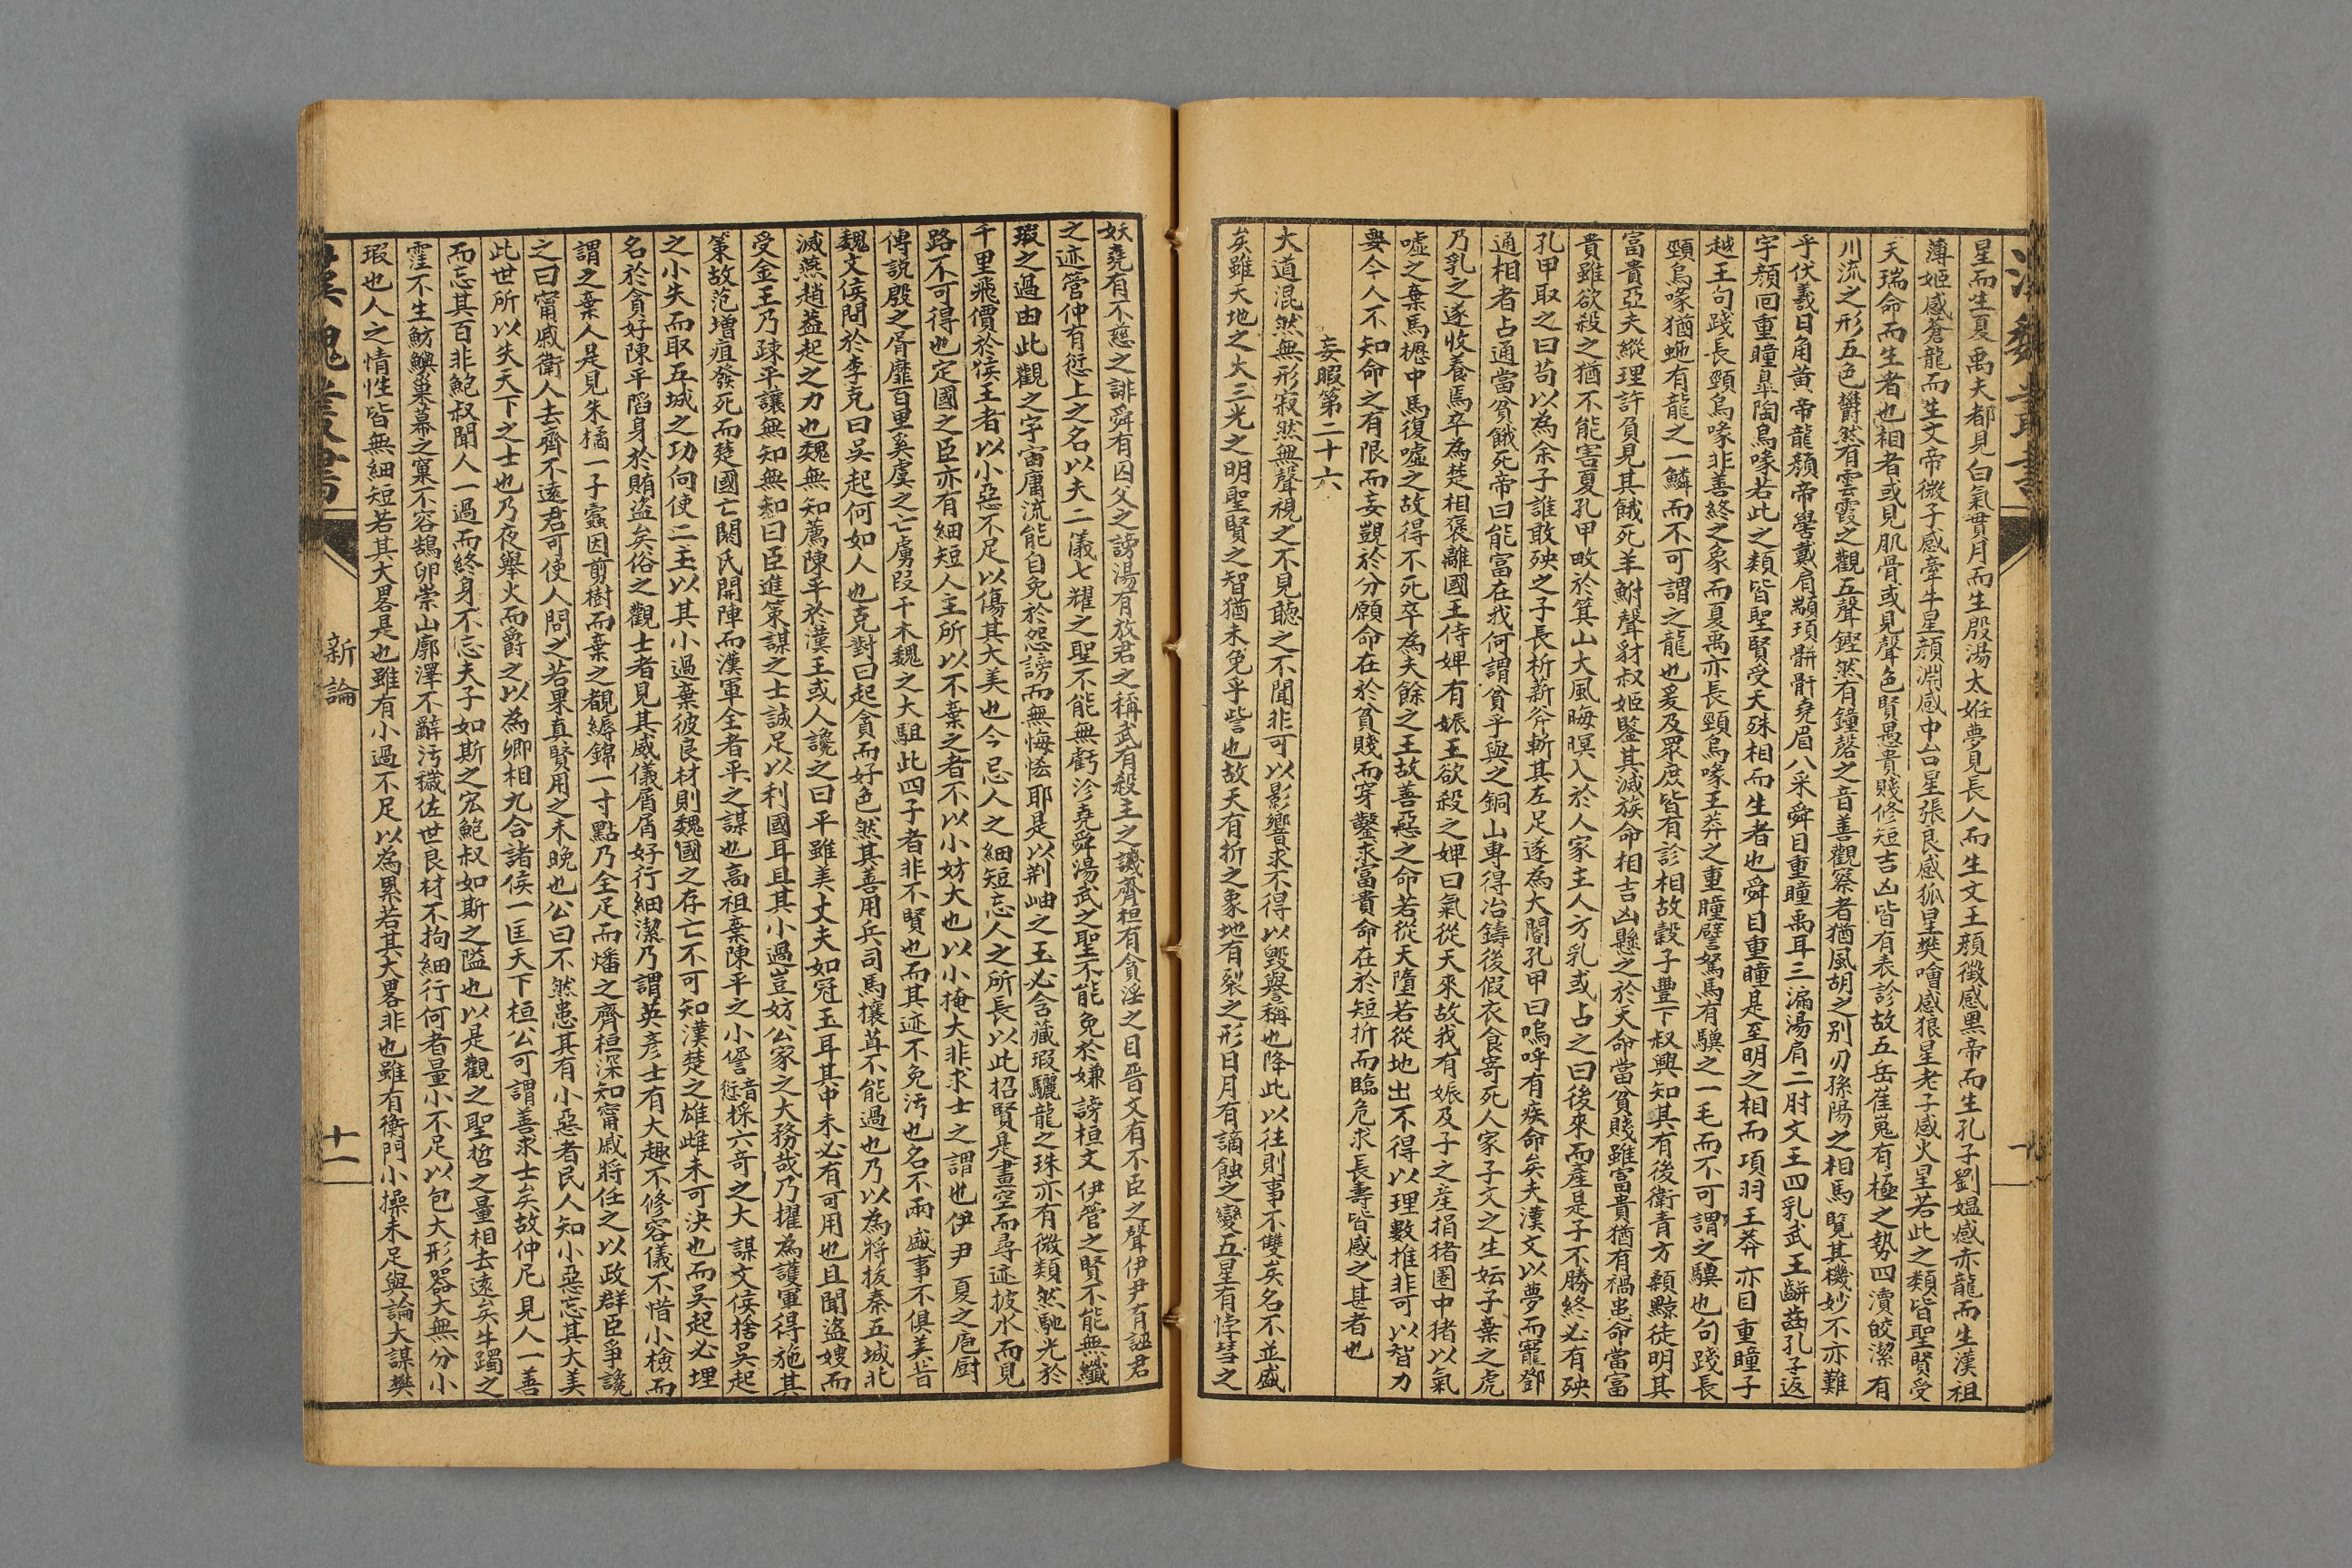 漢魏叢書
十
星而生夏禹夫都見白氣貫月而生殷湯太姙夢見長人而生文王顔徵感黑帝而生孔子劉媪感赤龍而生漢祖
薄姬感蒼龍而生文帝微子感牽牛星顔淵感中台星張良感狐星樊噲感狼星老子感火星若此之類皆聖賢受
天瑞命而生者也相者或見肌骨或見聲色賢愚貴賤修短吉凶皆有表診故五岳崔嵬有極之勢四瀆皎潔有
川流之形五色欝然有雲霞之觀五聲鏗然有鐘磬之音善觀察者猶風胡之别刃孫陽之相馬覽其機妙不亦難
乎伏羲日角黄帝龍顔帝嚳戴肩顓頊骿骭堯眉八采舜目重瞳禹耳三漏湯肩二肘文王四乳武王齞齒孔子返
宇顔回重瞳臯陶鳥喙若此之類皆聖賢受天殊相而生者也舜目重瞳是至明之相而項羽王莽亦目重瞳子
越王句踐長頸烏喙非善終之象而夏禹亦長頸烏喙王莽之重瞳譬駑馬有驥之一毛而不可謂之驥也句踐長
頸烏喙猶虵有龍之一鱗而不可謂之龍也爰及眾庶皆有診相故穀子豐下叔興知其有後衛青方顙黥徒明其
富貴亞夫縱理許負見其餓死羊鮒聲豺叔姬鑒其滅族命相吉凶懸之於天命當貧賤雖富貴猶有禍患命當富
貴雖欲殺之猶不能害夏孔甲畋於箕山大風晦暝入於人家主人方乳或占之曰後來而產是子不勝終必有殃
孔甲取之曰苟以為余子誰敢殃之子長析薪斧斬其左足遂為大閽孔甲曰嗚呼有疾命矣夫漢文以夢而寵鄧
通相者占通當貧餓死帝曰能富在我何謂貧乎與之銅山專得冶鑄後假衣食寄死人家子文之生妘子棄之虎
乃乳之遂收養焉卒為楚相褒離國王侍婢有娠王欲殺之婢曰氣從天來故我有娠及子之産捐猪圈中猪以氣
嘘之棄馬櫪中馬復嘘之故得不死卒為夫餘之王故善惡之命若從天墮若從地出不得以理數推非可以智力
要今人不知命之有限而妄覬於分願命在於貧賤而穿鑿求富貴命在於短折而臨危求長壽皆惑之甚者也
妄瑕第二十六
大道混然無形寂然無聲視之不見聽之不聞非可以影響求不得以毀譽稱也降此以往則事不雙矣名不並盛
矣雖天地之大三光之明聖賢之智猶未免乎訾也故天有拆之象地有裂之形日月有謫蝕之變五星有悖彗之
妖堯有不慈之誹舜有囚父之謗湯有放君之稱武有殺主之譏齊桓有貪淫之目晋文有不臣之聲伊尹有誣君
之迹管仲有愆上之名以夫二儀七耀之聖不能無虧沴堯舜湯武之聖不能免於嫌謗桓文伊管之賢不能無纖
瑕之過由此觀之宇宙庸流能自免於怨謗而無悔恡耶是以荆岫之玉必含藏瑕驪龍之珠亦有微纇然馳光於
千里飛價於侯王者以小惡不足以傷其大美也今忌人之細短忘人之所長以此招賢是畫空而尋迹披水而見
路不可得也定國之臣亦有細短人主所以不棄之者不以小妨大也以小掩大非求士之謂也伊尹夏之庖厨
傅説殷之胥靡百里奚虞之亡虜段干木魏之大駔此四子者非不賢也而其迹不免汚也名不兩盛事不俱美昔
魏文侯問於李克曰吴起何如人也克對曰起貪而好色然其善用兵司馬穰苴不能過也乃以為將拔秦五城北
滅燕趙葢起之力也魏無知薦陳平於漢王或人讒之曰平雖美丈夫如冠玉耳其中未必有可用也且聞盜嫂而
受金王乃疎平讓無知無知曰臣進策謀之士誠足以利國耳且其小過豈妨公家之大務哉乃擢為護軍得施其
策故范增疽發死而楚國亡閼氏開陣而漢軍全者平之謀也高祖棄陳平之小諐音愆採六奇之大謀文侯捨吴起
之小失而取五城之功向使二主以其小過棄彼良材則魏國之存亡不可知漢楚之雄雌未可決也而吴起必埋
名於貪好陳平陷身於賄盜矣俗之觀士者見其威儀屑屑好行細潔乃謂英彦士有大趣不修容儀不惜小檢而
謂之棄人是見朱橘一子蠧因剪樹而棄之覩縟錦一寸點乃全疋而燔之齊桓深知甯戚將任之以政群臣爭讒
之曰甯戚衛人去齊不遠君可使人問之若果真賢用之未晚也公曰不然患其有小惡者民人知小惡忘其大美
此世所以失天下之士也乃夜舉火而爵之以為卿相九合諸侯一匡天下桓公可謂善求士矣故仲尼見人一善
而忘其百非鮑叔聞人一過而終身不忘夫子如斯之宏鮑叔如斯之隘也以是觀之聖哲之量相去遠矣牛躅之
窪不生魴鱮巢幕之窠不容鵠卵崇山廓澤不辭汚穢佐世良材不拘細行何者量小不足以包大形器大無分小
瑕也人之情性皆無細短若其大畧是也雖有小過不足以為累若其大畧非也雖有衡門小操未足與論大謀樊
漢魏叢書
新論
十一